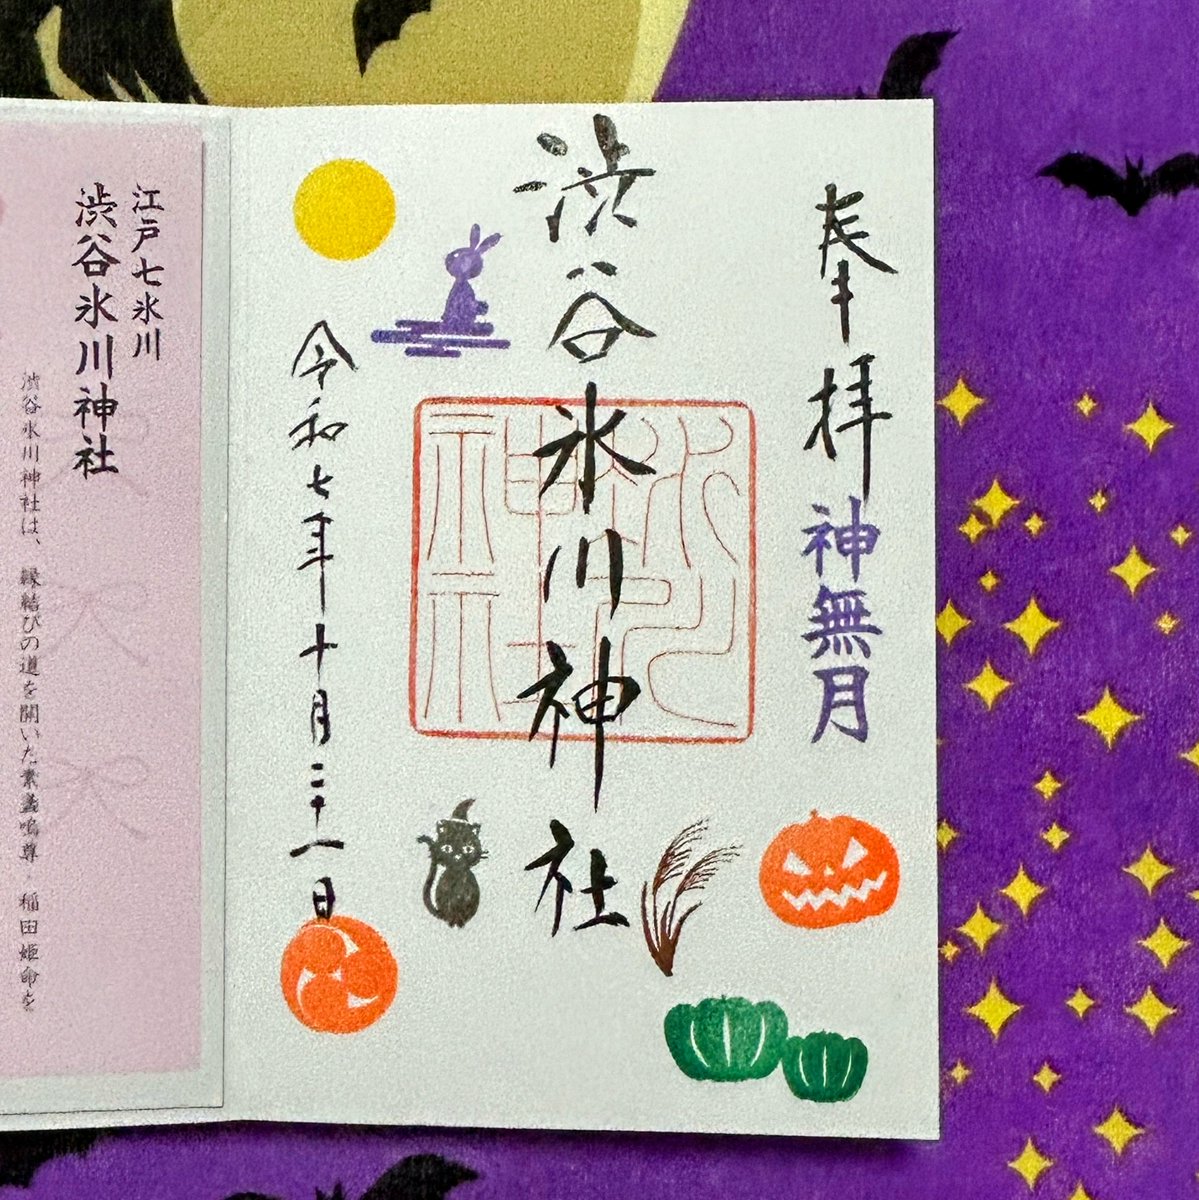 奉拝
神無月
渋谷氷川神社
令和七年十月二十一日
江戸七氷川
渋谷氷川神社
渋谷氷川神社は、縁結びの道を開いた素盞嗚尊・稲田姫命を